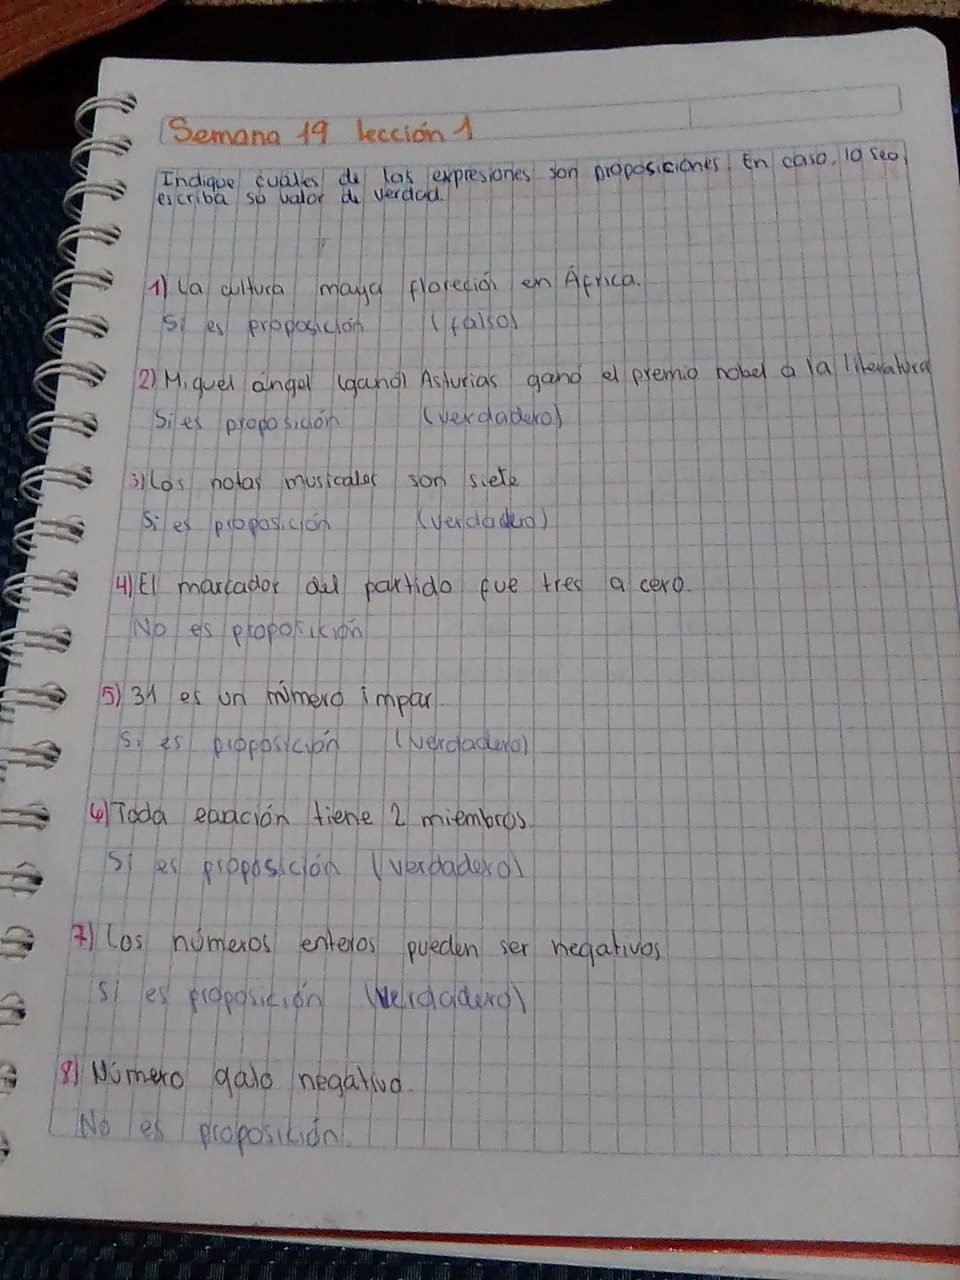 Semana 19 lección 1
Indique cuales de las expresiones son proposiciones. En caso, lo sea,
escriba su valor de verdad.
1) La cultura maya floreción en África.
Si es proposición (falso)
2) Miguel ángel (ganó) Asturias ganó el premio nobel a la literatura
Si es proposición (verdadero)
3) Las notas musicales son siete
Si es proposición (verdadero)
4) El marcador del partido fue tres a cero.
No es proposición
5) 31 es un número impar.
Si es proposición (verdadero)
6) Toda ecuación tiene 2 miembros.
Si es proposición (verdadero)
7) Los números enteros pueden ser negativos
Si es proposición (verdadero)
8) Número galo negativo.
No es proposición.